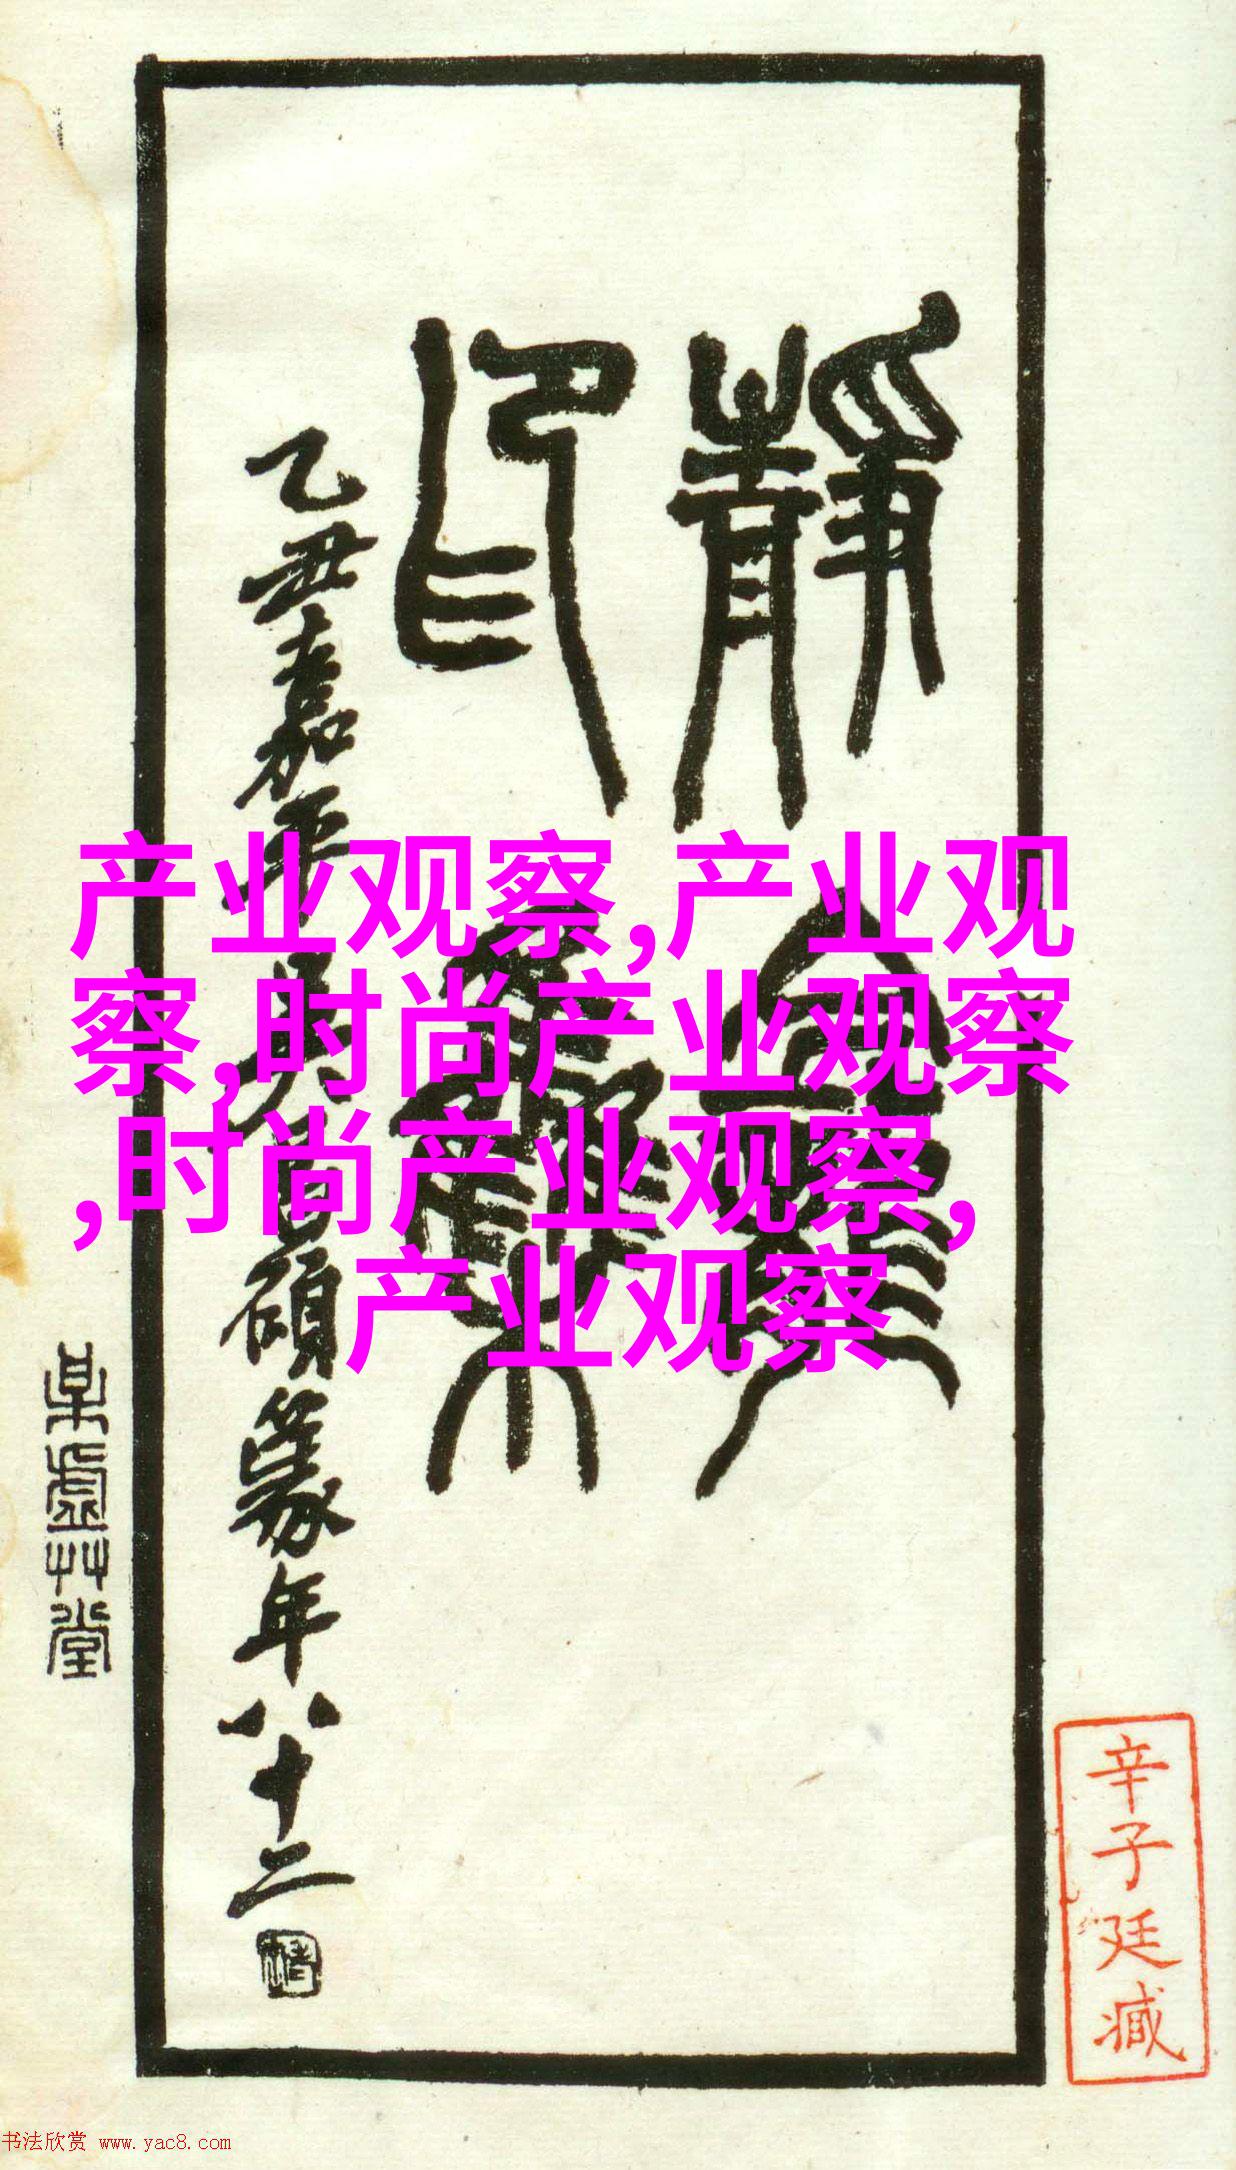 靜龕
印雧
乙丑嘉平月吳昌碩篆年八十二
某虛艸堂
辛子廷臧
产业观察,产业观
察,时尚产业观察
,时尚产业观察,
产业观察
书法欣赏 www.yac8.com